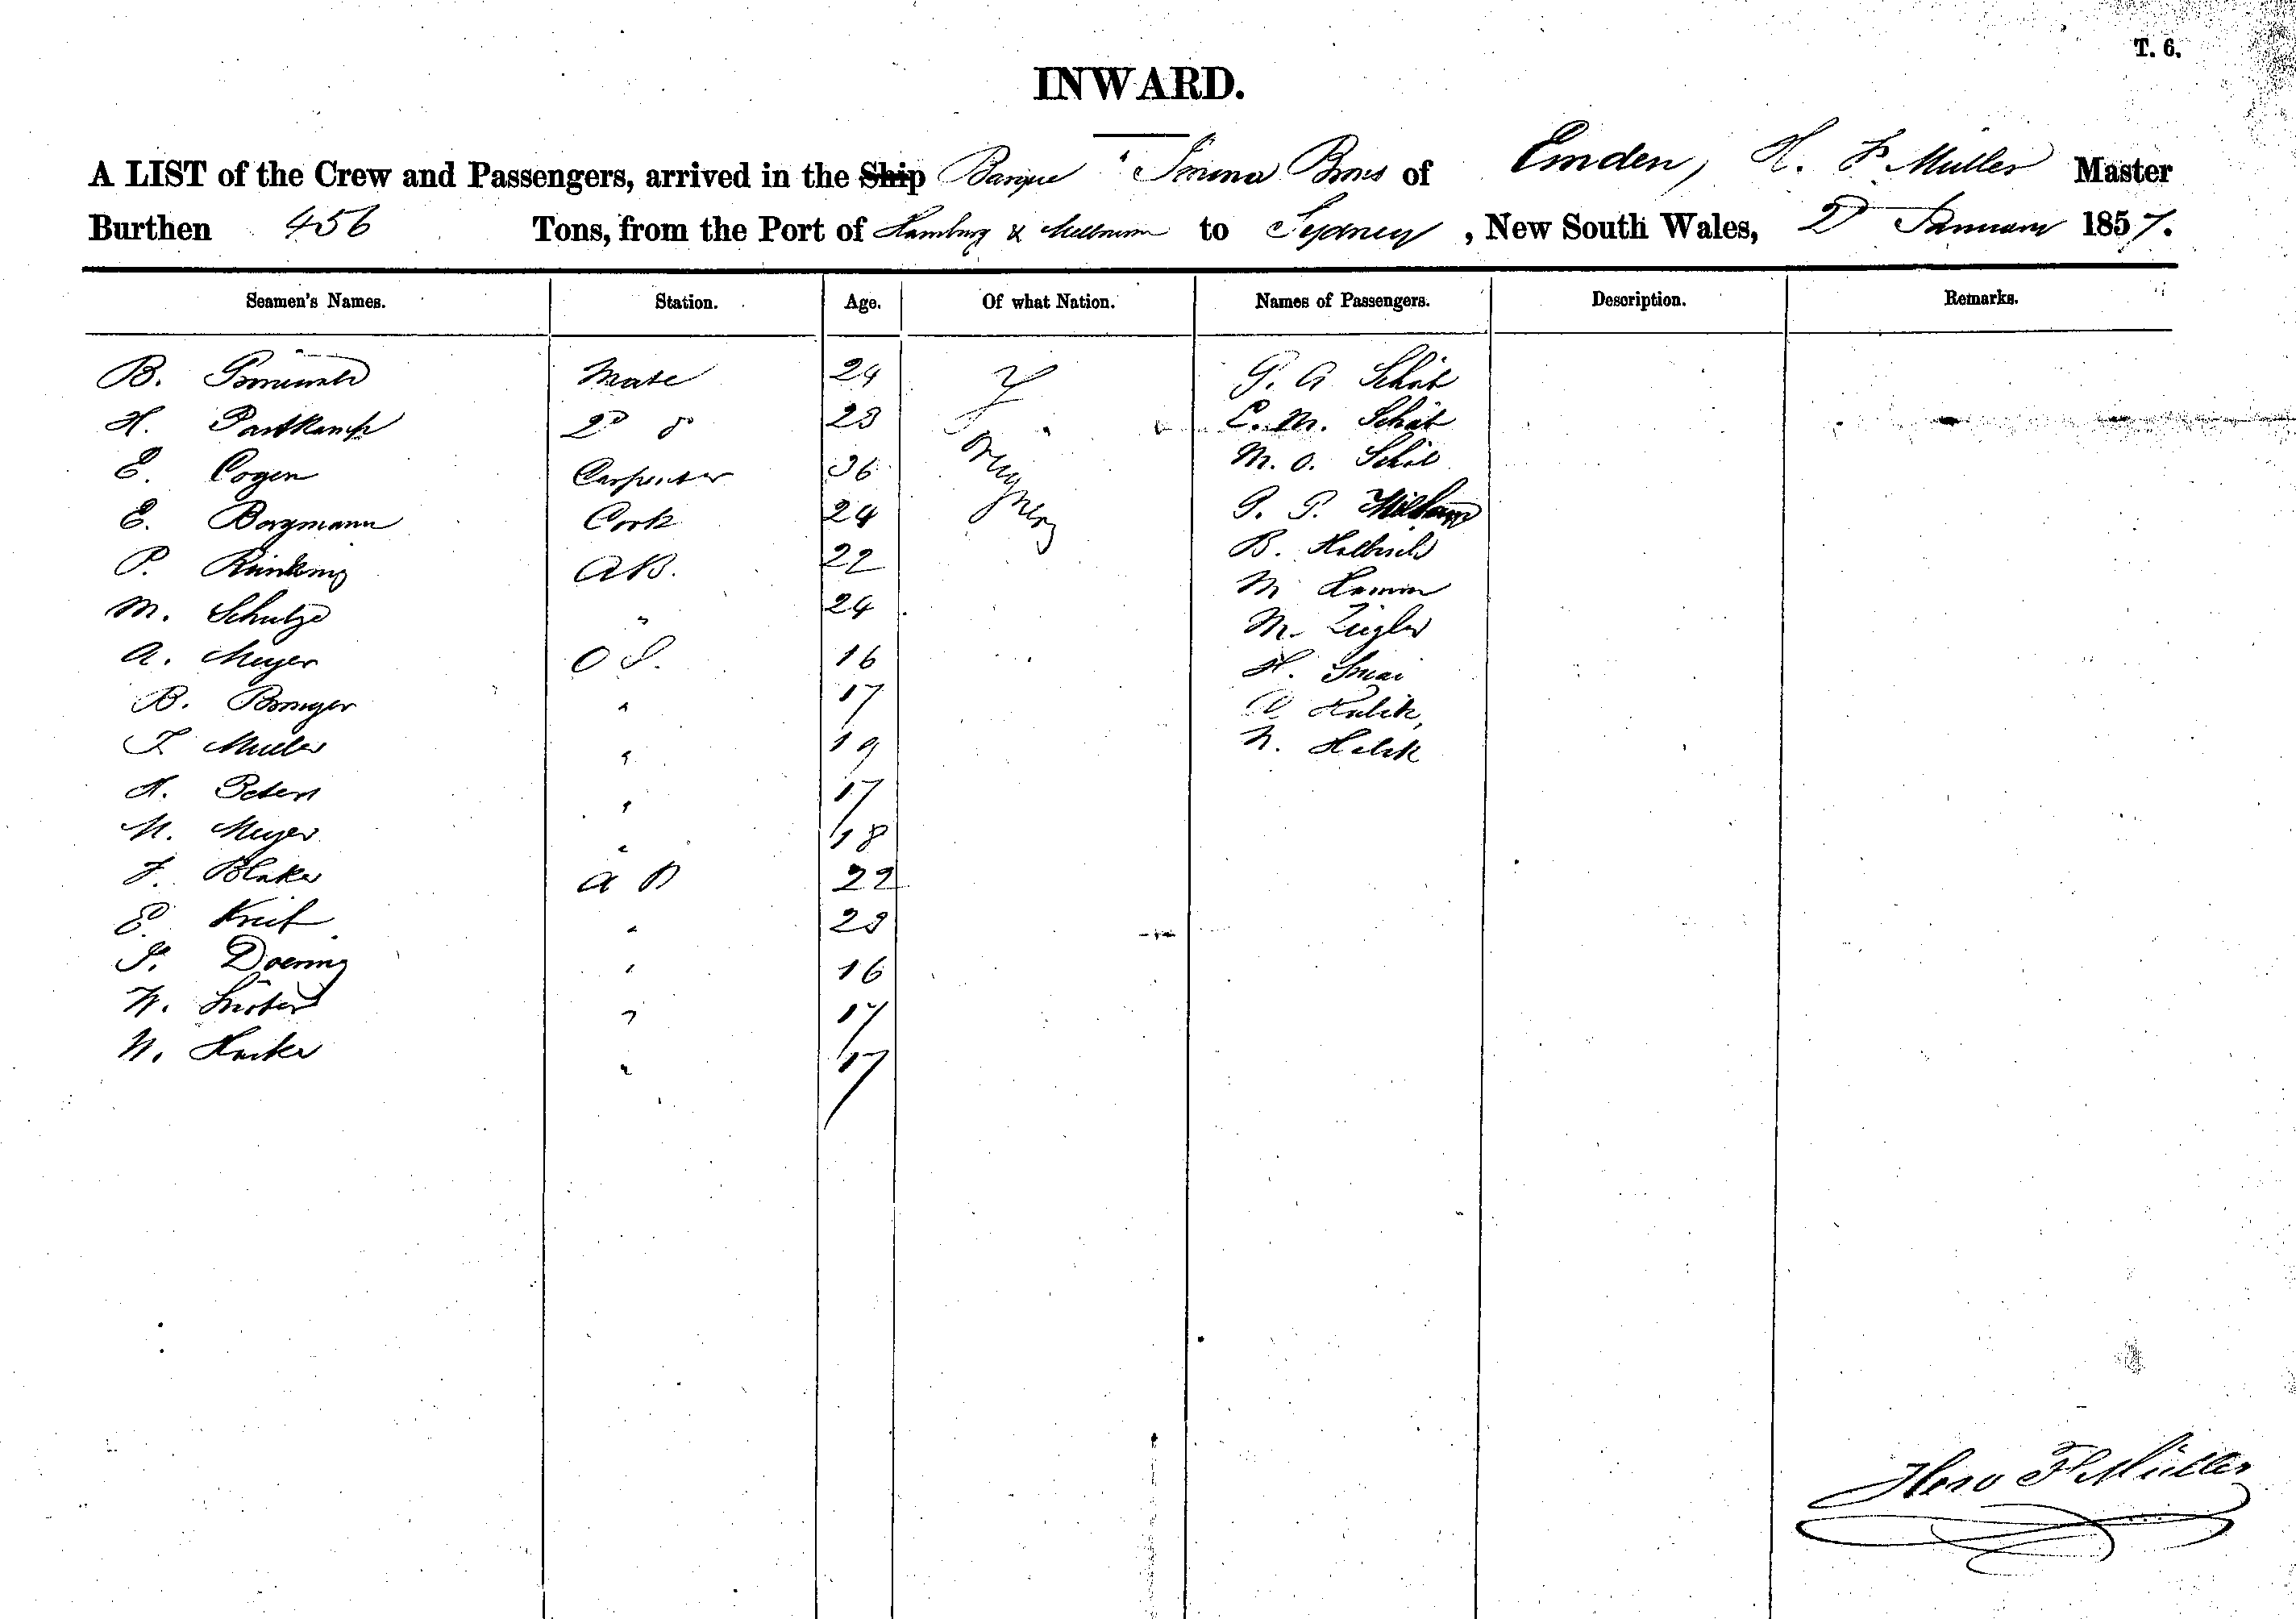 T. 6.
INWARD.
A LIST of the Crew and Passengers, arrived in the Ship Barque " Brons of Emden, H. F. Müller Master
Burthen 456 Tons, from the Port of Hamburg & Melbourne to Sydney, New South Wales, 2d January 1857.
Seamen's Names. Station. Age. Of what Nation. Names of Passengers. Description. Remarks.
B. Mate 24 G. A. Schöt
H. Partkamp 2d do 23 C. M. Schöt
E. Cogen Carpenter 36 M. O. Schöt
E. Bergmann Cook 24 G. P.
P. AB. 22 B.
M. Schulze " 24 M
A. Meyer O S. 16 M. Ziegler
B. " 17 H.
F. Muller " 19 Halik
H. Peters " 17 N. Halik
M. Meyer " 18
F. Blaker A B 22
E. " 23
P. Doering " 16
W. " 17
N. " 17
Hero F Müller